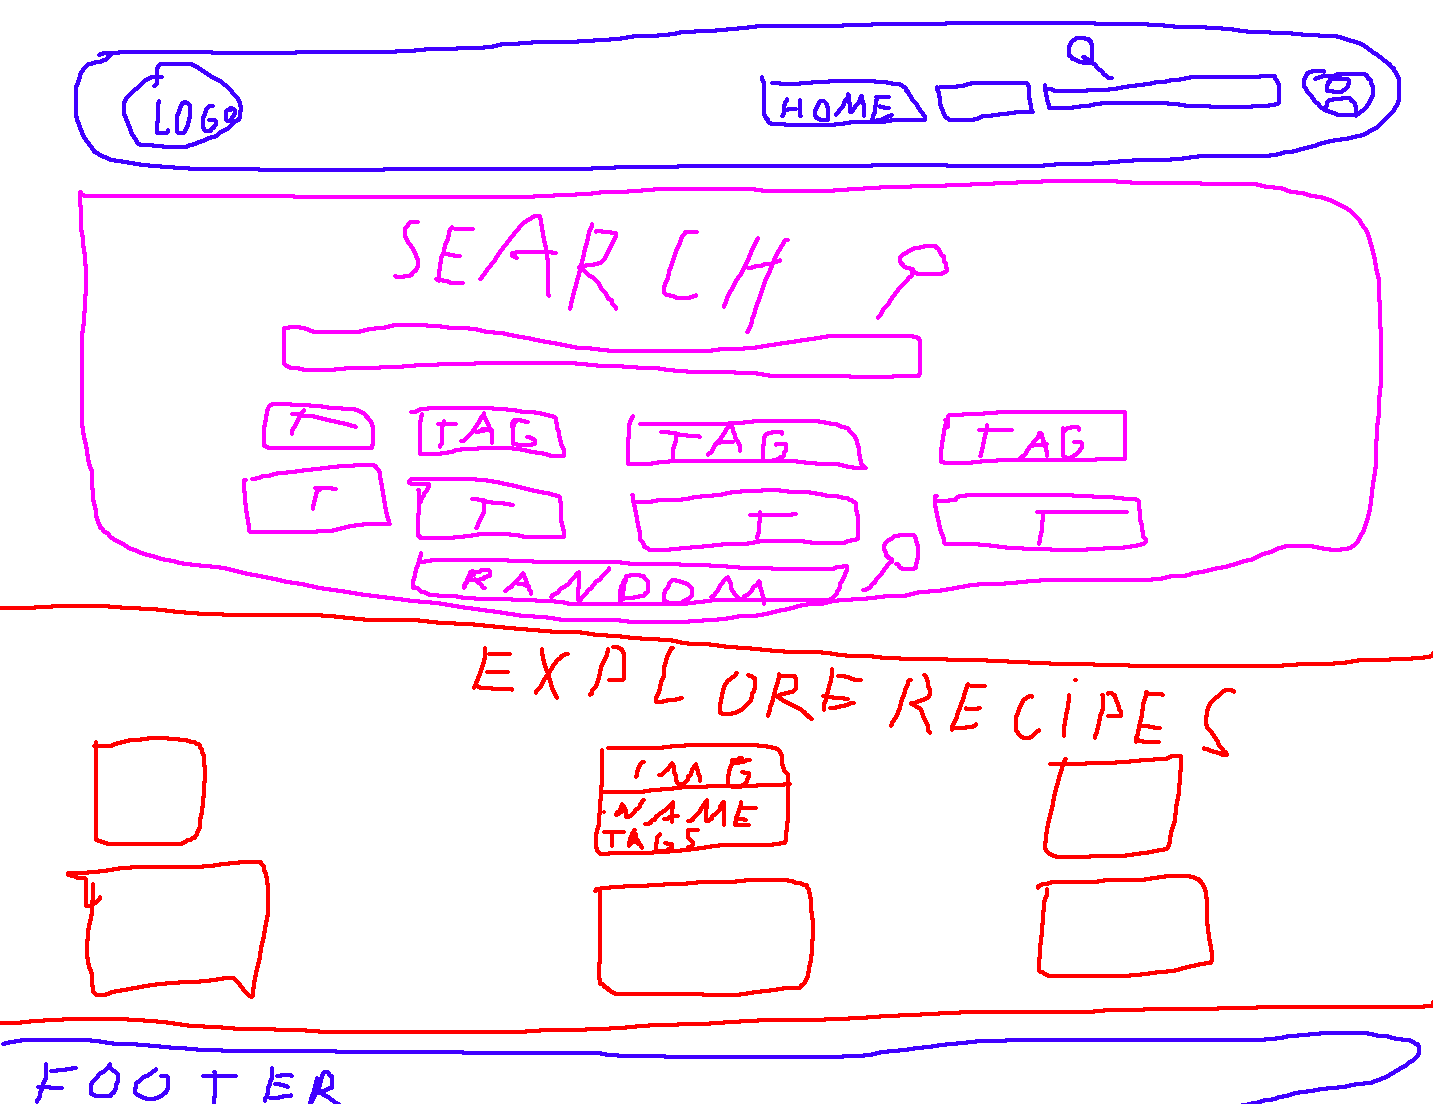 LOGO
HOME
SEARCH
T TAG TAG TAG
T T T T
RANDOM
EXPLORE RECIPES
IMG
NAME
TAGS
FOOTER